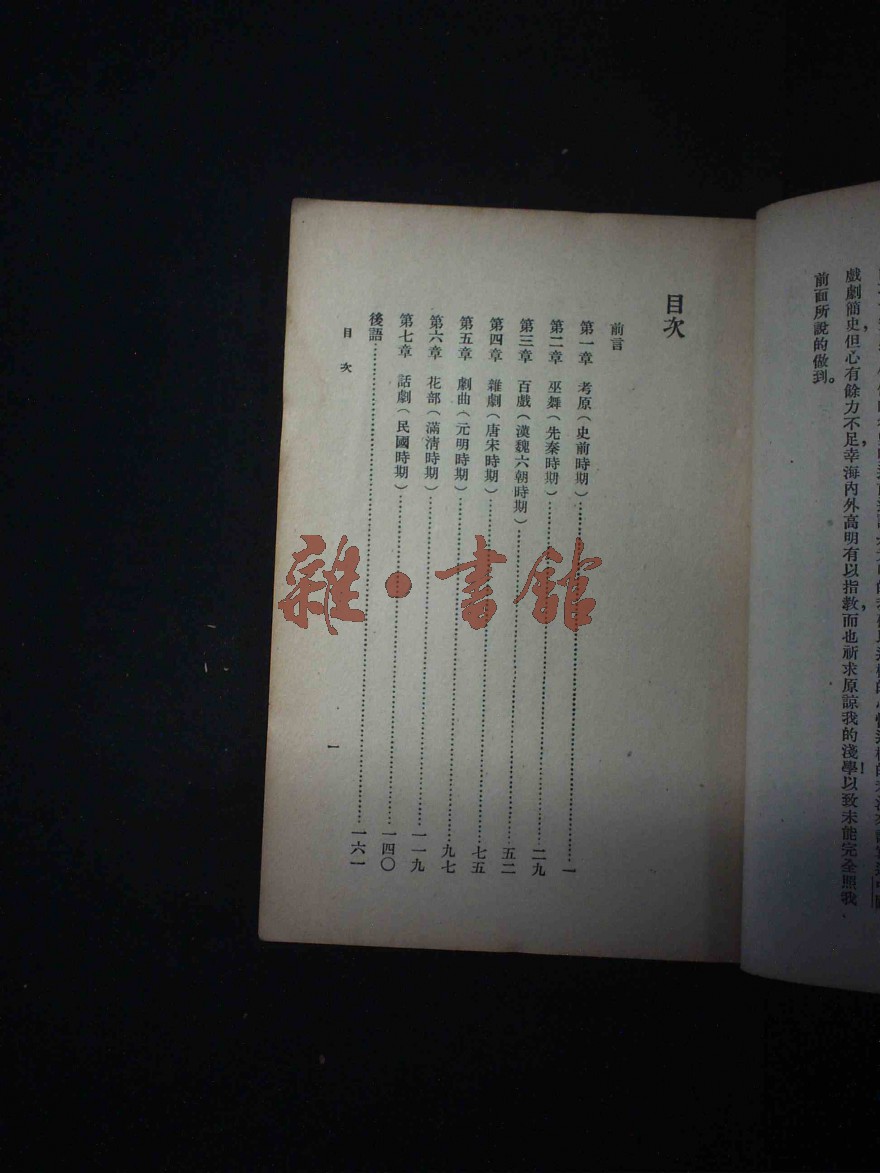 戲劇簡史,但心有餘力不足,幸海內外高明有以指教,而也祈求原諒我的淺學!以致未能完全照我
前面所說的做到。
目次
前言
第一章 考原(史前時期)……一
第二章 巫舞(先秦時期)……二九
第三章 百戲(漢魏六朝時期)……五二
第四章 雜劇(唐宋時期)……七五
第五章 劇曲(元明時期)……九七
第六章 花部(滿清時期)……一一九
第七章 話劇(民國時期)……一四〇
後語……一六一
目次 一
雜·書館